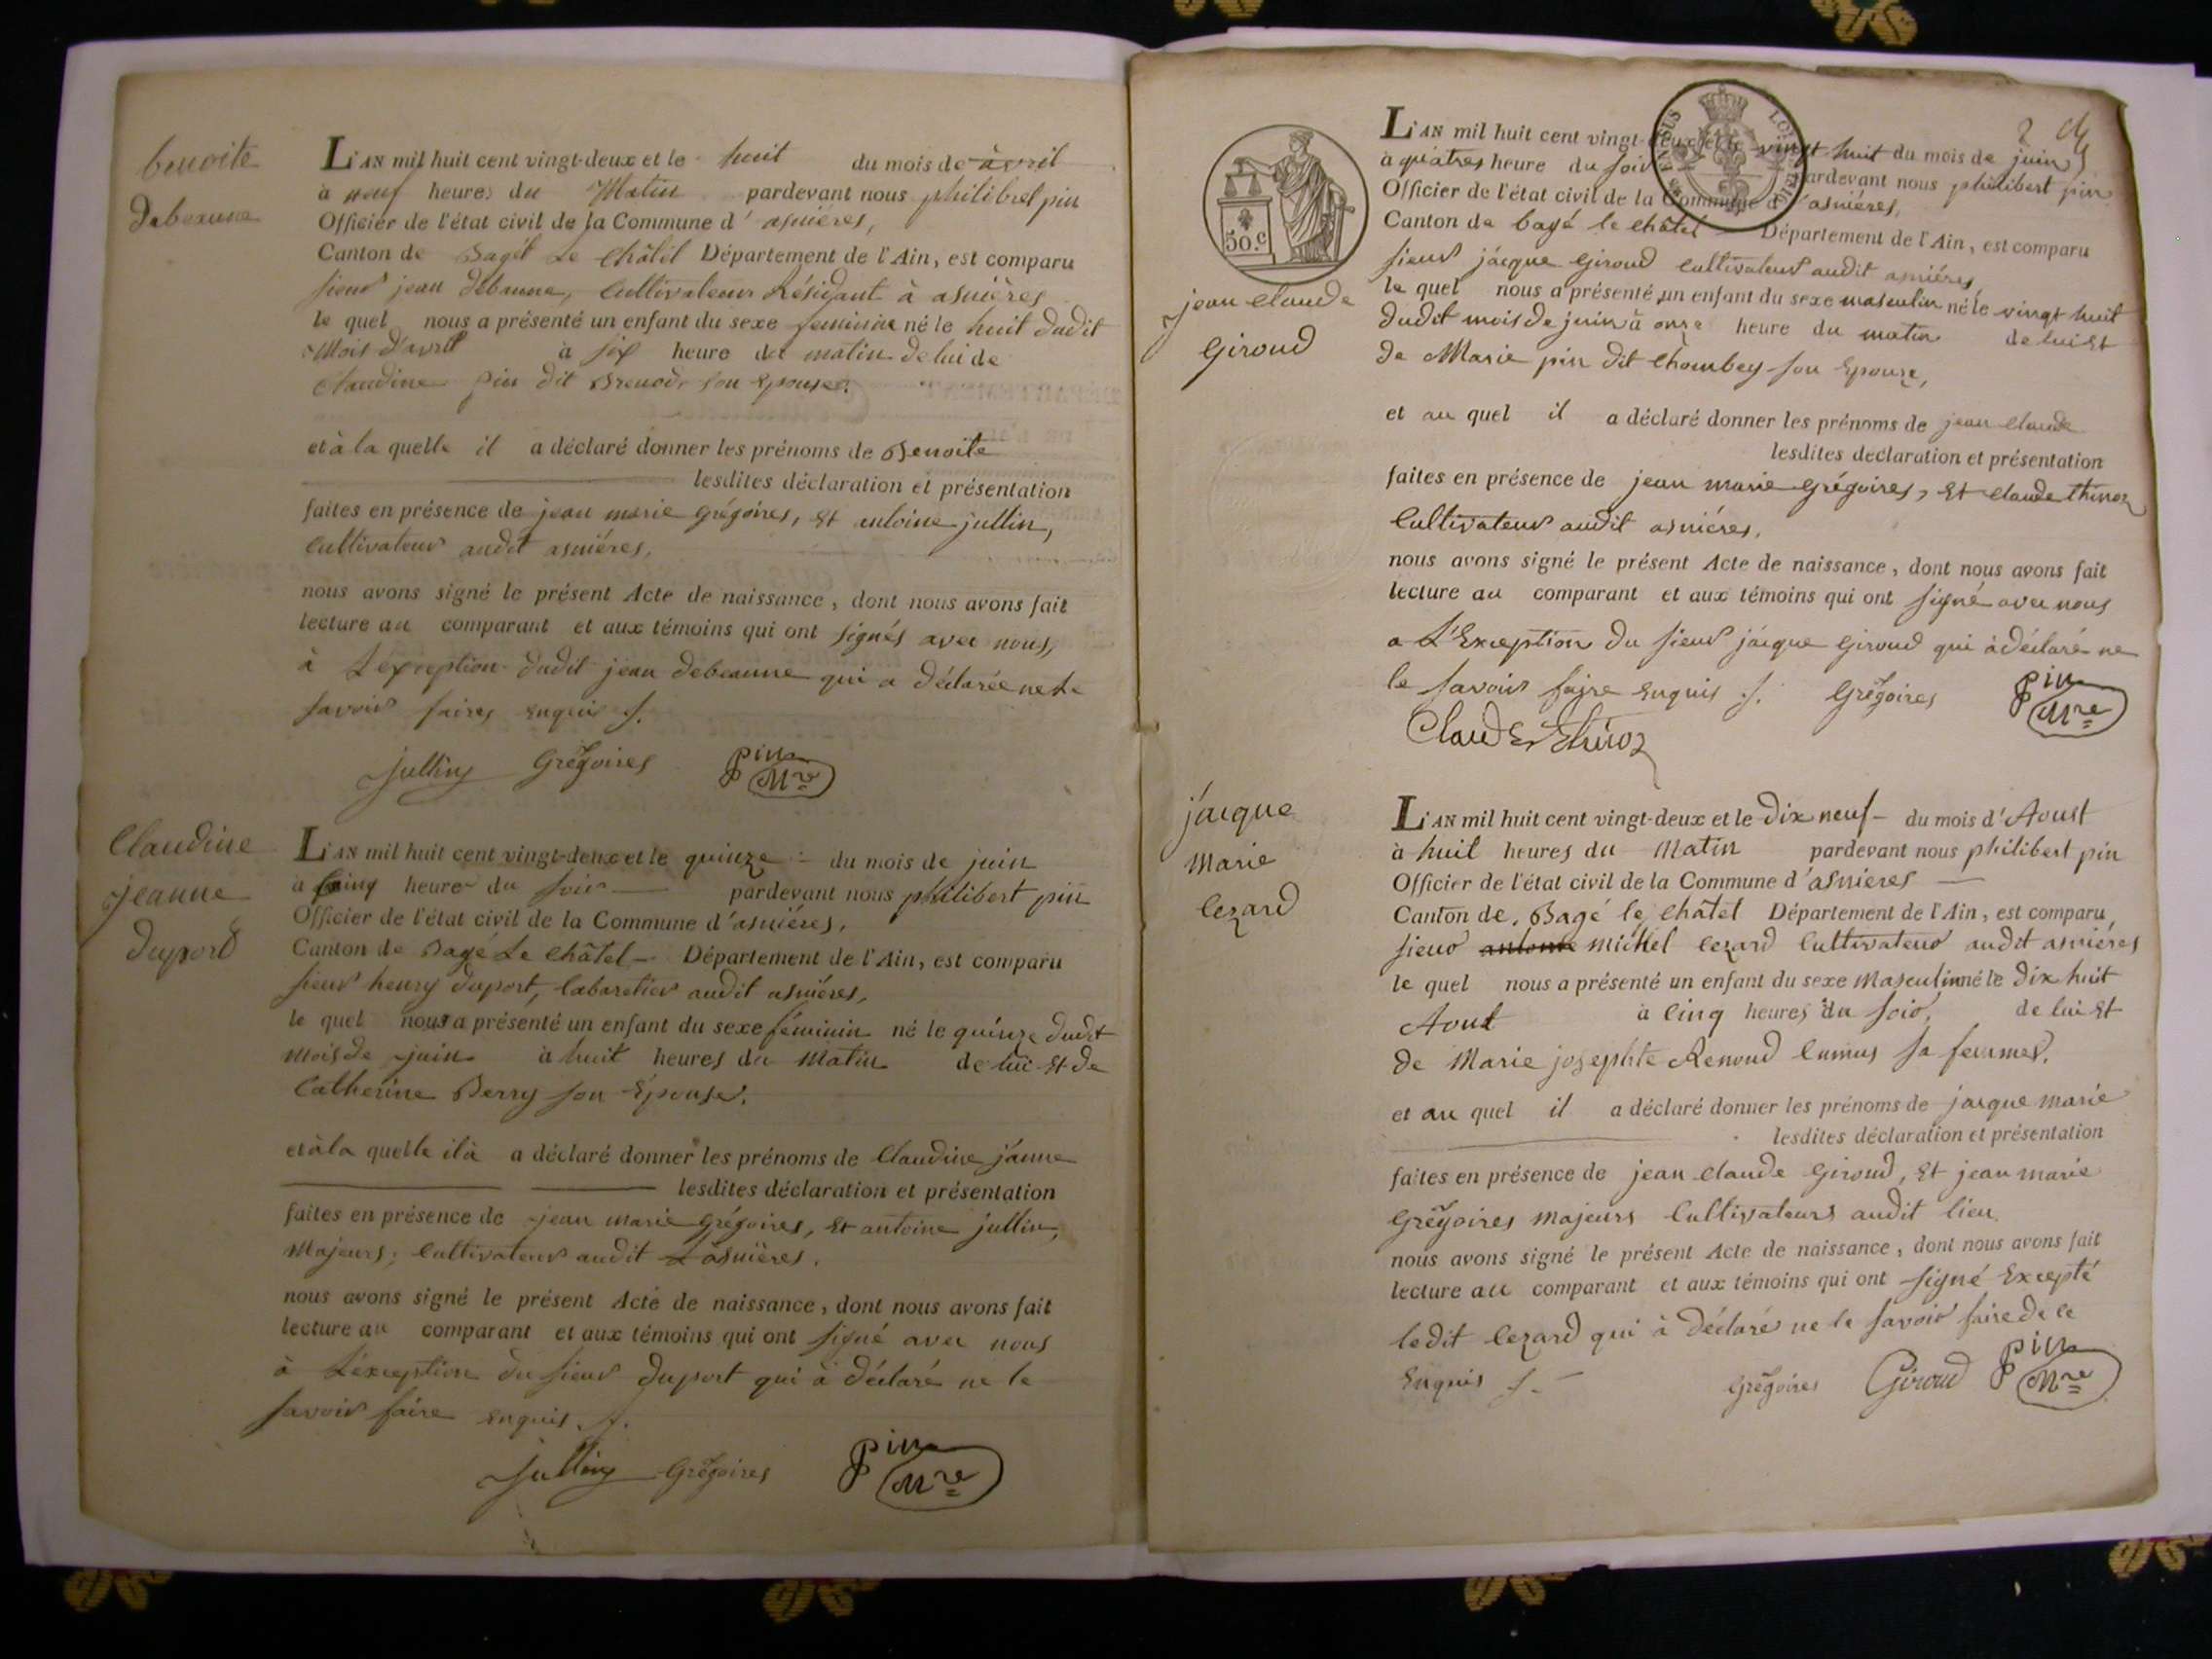 benoite
debeaune
L'AN mil huit cent vingt-deux et le huit du mois de avril
à neuf heures du Matin pardevant nous philibret pin
Officier de l'état civil de la Commune d'asnières,
Canton de Bagé Le Châtel Département de l'Ain, est comparu
sieur jean debeaune, Cultivateur Résidant à asnières
le quel nous a présenté un enfant du sexe feminin né le huit dudit
Mois d'avril à six heure du matin de lui de
Claudine pin dit Brenod, son Epouse.
et à la quelle il a déclaré donner les prénoms de Benoite
lesdites déclaration et présentation
faites en présence de jean marie grégoires, Et antoine jullin,
Cultivateur audit asniéres,
nous avons signé le présent Acte de naissance, dont nous avons fait
lecture au comparant et aux témoins qui ont signés avec nous,
à L'exception dudit jean debeaune qui a déclarée ne le
savoir faires Enquis f.
jullin Grégoires pin Mre
Claudine
jeanne
duport
L'AN mil huit cent vingt-deux et le quinze du mois de juin
à cinq heure du soir pardevant nous philibert pin
Officier de l'état civil de la Commune d'asniéres,
Canton de Bagé Le Châtel Département de l'Ain, est comparu
sieur henry duport, Cabaretier audit asniéres,
le quel nous a présenté un enfant du sexe féminin né le quinze dudit
mois de juin à huit heures du Matin de lui Et de
Catherine Berry son Épouse.
et à la quelle il à a déclaré donner les prénoms de Claudine jeanne
lesdites déclaration et présentation
faites en présence de jean marie grégoires, Et antoine jullin,
Majeurs, Cultivateur audit asnières.
nous avons signé le présent Acte de naissance, dont nous avons fait
lecture au comparant et aux témoins qui ont signé avec nous
à L'éxception du sieur duport qui à déclaré ne le
savoir faire enquis. f.
jullin Grégoires pin Mre
2
50.c
jean Claude
Giroud
L'AN mil huit cent vingt-deux et le vingt-huit du mois de juin
à quatres heure du soir pardevant nous philibert pin
Officier de l'état civil de la Commune d'asniéres,
Canton de bagé le Châtel Département de l'Ain, est comparu
sieur jacque Giroud Cultivateur audit asniéres,
le quel nous a présenté un enfant du sexe masculin né le vingt huit
dudit mois de juin à onze heure du matin de lui Et
de Marie pin dit Chombey son Epouse,
et au quel il a déclaré donner les prénoms de jean Claude
lesdites declaration et présentation
faites en présence de jean marie Grégoires, Et Claude thinoz
Cultivateur audit asniéres.
nous avons signé le présent Acte de naissance, dont nous avons fait
lecture au comparant et aux témoins qui ont signé avec nous
a L'Exception du sieur jacque Giroud qui à déclaré ne
le savoir faire Enquis f. Grégoires pin Mre
Claude thinoz
jacque
Marie
lezard
L'AN mil huit cent vingt-deux et le dix neuf du mois d'Aoust
à huit heures du Matin pardevant nous philibert pin
Officier de l'état civil de la Commune d'asnieres
Canton de Bagé le Châtel Département de l'Ain, est comparu
sieur antoine michel lezard Cultivateur audit asniéres
le quel nous a présenté un enfant du sexe Masculin né le dix huit
Aout à Cinq heures du soir, de lui Et
de Marie josephte Renoud Camus sa femmes.
et au quel il a déclaré donner les prénoms de jacque marie
lesdites déclaration et présentation
faites en présence de jean Claude Giroud, Et jean marie
Grégoires Majeurs Cultivateurs audit lieu.
nous avons signé le présent Acte de naissance, dont nous avons fait
lecture au comparant et aux témoins qui ont signé Excepté
ledit lezard qui à déclaré ne le savoir faire de ce
Enquis f. Grégoires Giroud pin Mre